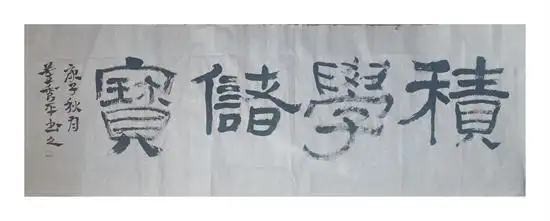 積學儲寶
庚子秋月